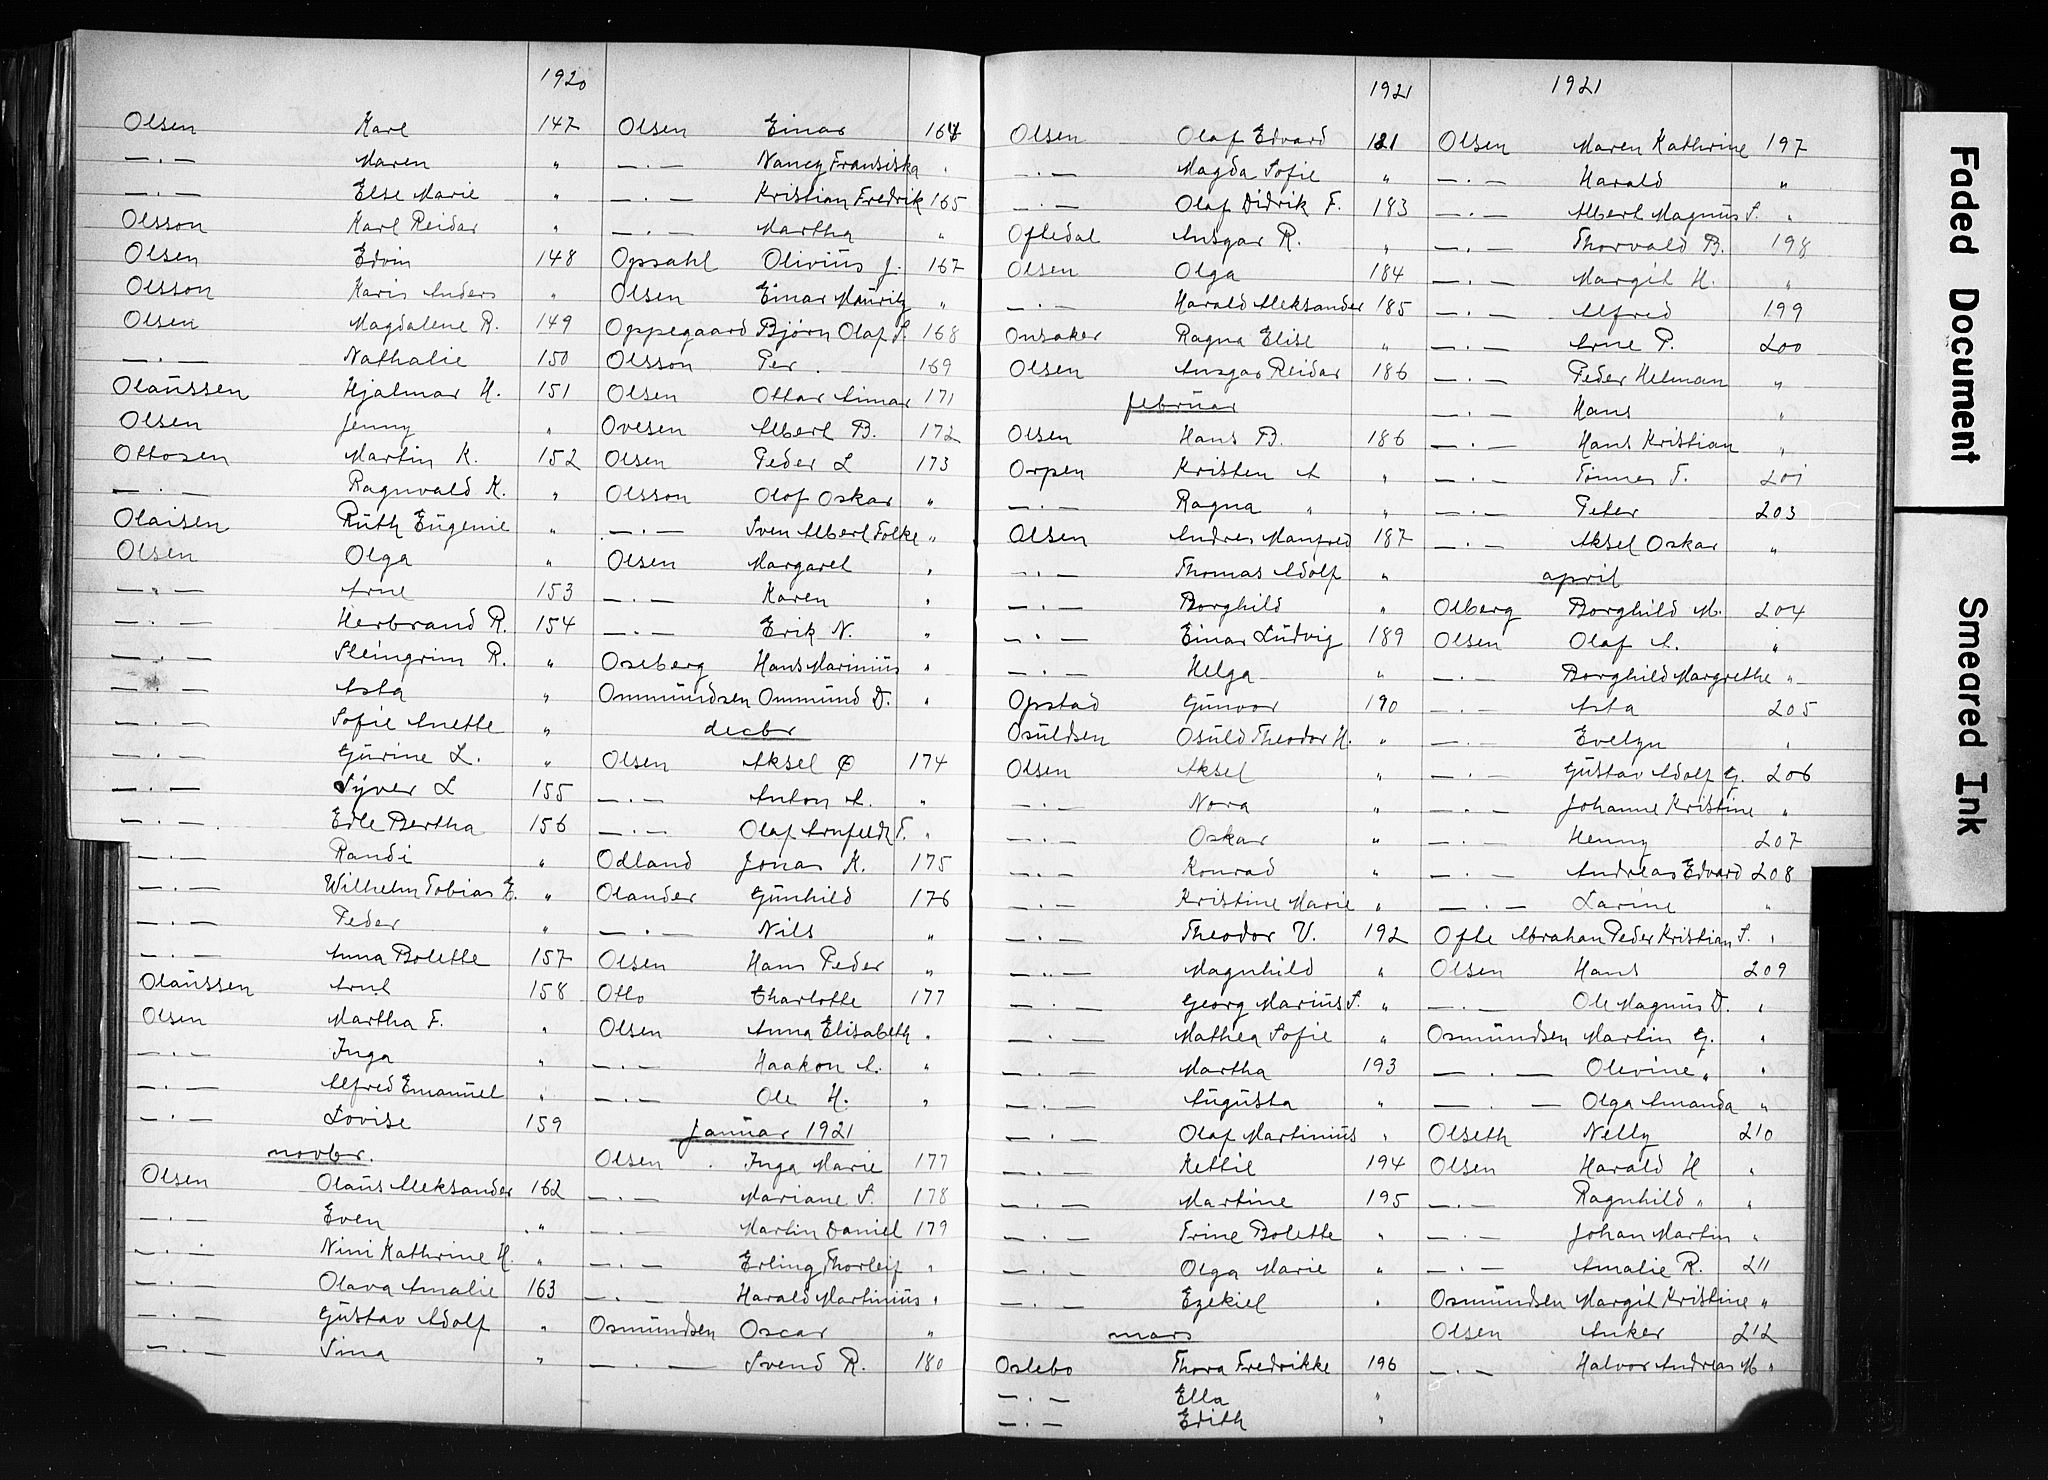 1920
Olsen Karl 147
—·— Maren "
—·— Else Marie "
Olsson Karl Reidar "
Olsen Edvin 148
Olsson Karis Anders "
Olsen Magdalene R. 149
—·— Nathalie 150
Olaussen Hjalmar H. 151
Olsen Jenny "
Ottosen Martin K. 152
—·— Ragnvald K. "
Olaisen Ruth Eugenie "
Olsen Olga "
—·— Arne 153
—·— Herbrand R. 154
—·— Steingrim R. "
—·— Asta "
—·— Sofie Anette "
—·— Gurine L. "
—·— Syver L 155
—·— Edle Bertha 156
—·— Randi "
—·— Wilhelm Tobias E. "
—·— Peder "
—·— Anna Bolette 157
Olaussen Arne 158
Olsen Martha F. "
—·— Inga "
—·— Alfred Emanuel "
—·— Lovise 159
novbr.
Olsen Olaus Aleksander 162
—·— Even "
—·— Nini Kathrine H. "
—·— Olava Amalie 163
—·— Gustav Adolf "
—·— Sina "
Olsen Einar 164
—·— Nancy Fransiska "
—·— Kristian Fredrik 165
—·— Martha "
Opsahl Olivius J. 167
Olsen Einar Mauritz "
Oppegaard Bjørn Olaf S. 168
Olsson Per 169
Olsen Ottar Aimar 171
Ovesen Albert B. 172
Olsen Peder L 173
Olsson Olof Oskar "
—·— Sven Albert Folke "
Olsen Margaret "
—·— Karen "
—·— Erik N. "
Oseberg Hans Marinius "
Ommundsen Ommund D. "
decbr
Olsen Aksel C 174
—·— Anton A. "
—·— Olaf Arnfeldt T. "
Odland Jonas K. 175
Olander Gunhild 176
—·— Nils "
Olsen Hans Peder "
Otto Charlotte 177
Olsen Anna Elisabeth "
—·— Haakon A. "
—·— Ole H. "
Januar 1921
Olsen Inga Marie 177
—·— Mariane S. 178
—·— Martin Daniel 179
—·— Erling Thorleif "
—·— Harald Martinius "
Osmundsen Oscar "
—·— Svend R. 180
1921
Olsen Olaf Edvard 181
—·— Magda Sofie "
—·— Olaf Didrik F. 183
Oftedal Ansgar R. "
Olsen Olga 184
—·— Harald Aleksander 185
Onsaker Ragna Elise "
Olsen Ansgar Reidar 186
februar
Olsen Hans B. 186
Orpen Kristen A "
—·— Ragna " "
Olsen Andres Manfred 187
—·— Thomas Adolf "
—·— Borghild "
—·— Einar Ludvig 189
—·— Helga "
Opstad Gunvor 190
Osuldsen Osuld Theodor H. "
Olsen Aksel "
—·— Nora "
—·— Oskar "
—·— Konrad "
—·— Kristine Marie "
—·— Theodor V. 192
—·— Magnhild "
—·— Georg Marius S. "
—·— Mathea Sofie "
—·— Martha 193
—·— Augusta "
—·— Olaf Martinius "
—·— Kettil 194
—·— Martine 195
—·— Trine Bolette "
—·— Olga Marie "
—·— Ezekiel "
mars
Oslebo Thora Fredrikke 196
—·— Ella "
—·— Edith "
1921
Olsen Maren Kathrine 197
—·— Harald "
—·— Albert Magnus S. "
—·— Thorvald B. 198
—·— Margit H. "
—·— Alfred 199
—·— Arne P. 200
—·— Peder Helman "
—·— Hans "
—·— Hans Kristian "
—·— Tønnes T. 201
—·— Peter 203
—·— Aksel Oskar "
april
Olberg Borghild M. 204
Olsen Olaf A. "
—·— Borghild Margrethe "
—·— Asta 205
—·— Evelyn "
—·— Gustav Adolf G. 206
—·— Johanne Kristine "
—·— Henny 207
—·— Andreas Edvard 208
—·— Larine "
Ofte Abrahan Peder Kristian S. "
Olsen Hans 209
—·— Ole Magnus D. "
Osmundsen Martin G. "
—·— Olevine " "
—·— Olga Amanda "
Olseth Nelly 210
Olsen Harald H "
—·— Ragnhild " "
—·— Johan Martin "
—·— Amalie R. 211
Osmundsen Margit Kristine "
Olsen Anker 212
—·— Halvor Andreas M "
Faded Document
Smeared Ink